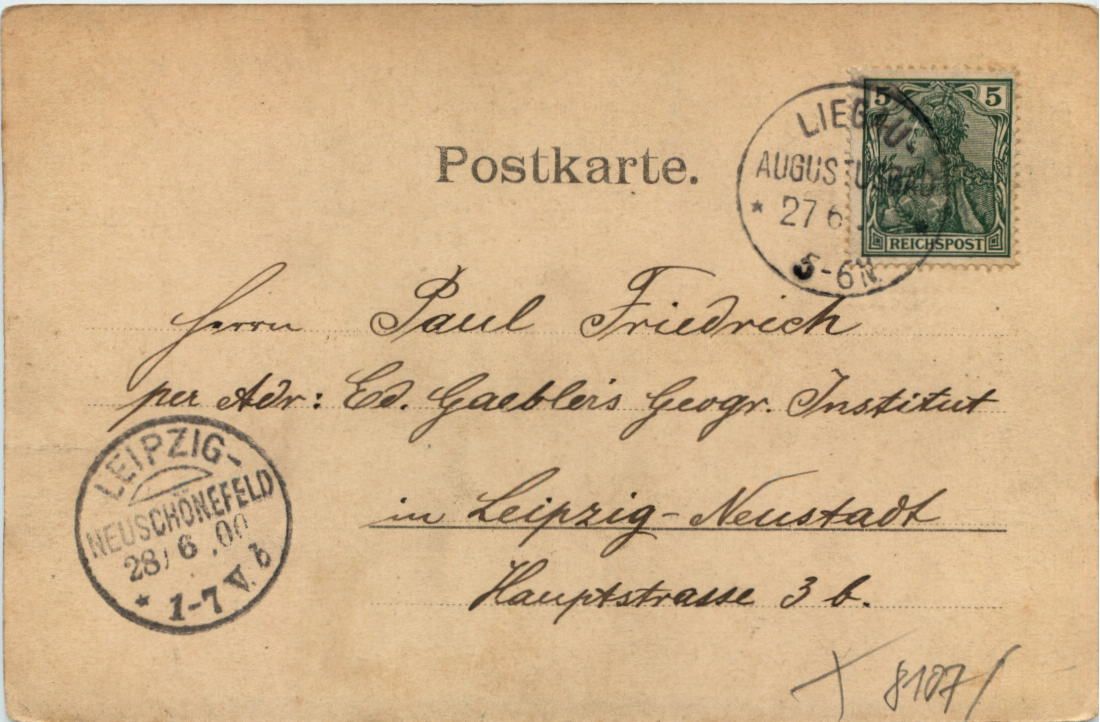 Postkarte.
5 5
REICHSPOST
LIEGAU-
AUGUSTUSBAD
* 27 6
5-6N
Herrn Paul Friedrich
per Adr: Ed. Gaebler's Geogr. Institut
in Leipzig-Neustadt
Hauptstrasse 3 b.
LEIPZIG-
NEUSCHÖNEFELD
28/ 6 .00
* 1-7 V. b
8107/